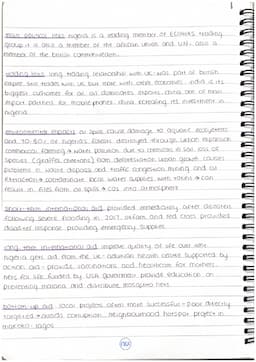 main political links nigeria is a leading member of ECOWAS trading
group it is also a member of the african union and UN. also a
member of the british commonwealth.
trading links long trading relationship with UK: was part of british
empire. still trades with UK but more with other economies. india is its
biggest customer for oil. oil dominates exports. china one of main
import partners for mobile phones. china increasing its investment in
nigeria.
environmental impacts oil spills cause damage to aquatic ecosystems
and 70-80% of nigeria's forests destroyed through urban expansion
commercial farming + water pollution due to chemicals in soil. loss of
species (giraffes, cheetahs) from deforestation. urban growth causes
problems in waste disposal and traffic congestion. mining and oil
extraction + contaminate local water supplies with toxins + can
result in fires from oil spills + CO2 into atmosphere
short-term international aid provided immediately after disasters
following severe flooding in 2017, oxfam and red cross provided
disaster response providing emergency supplies
long term international aid improve quality of life over time
nigeria gets aid from the UK: aduwan health centre supported by
action aid - provides vaccinations and healthcare for mothers.
nets for life funded by USA government provide education on
preventing malaria and distribute mosquito nets.
bottom up aid local projects often more successful - poor directly
targeted + avoids corruption. neighbourhood hotspot project in
makoko - lagos